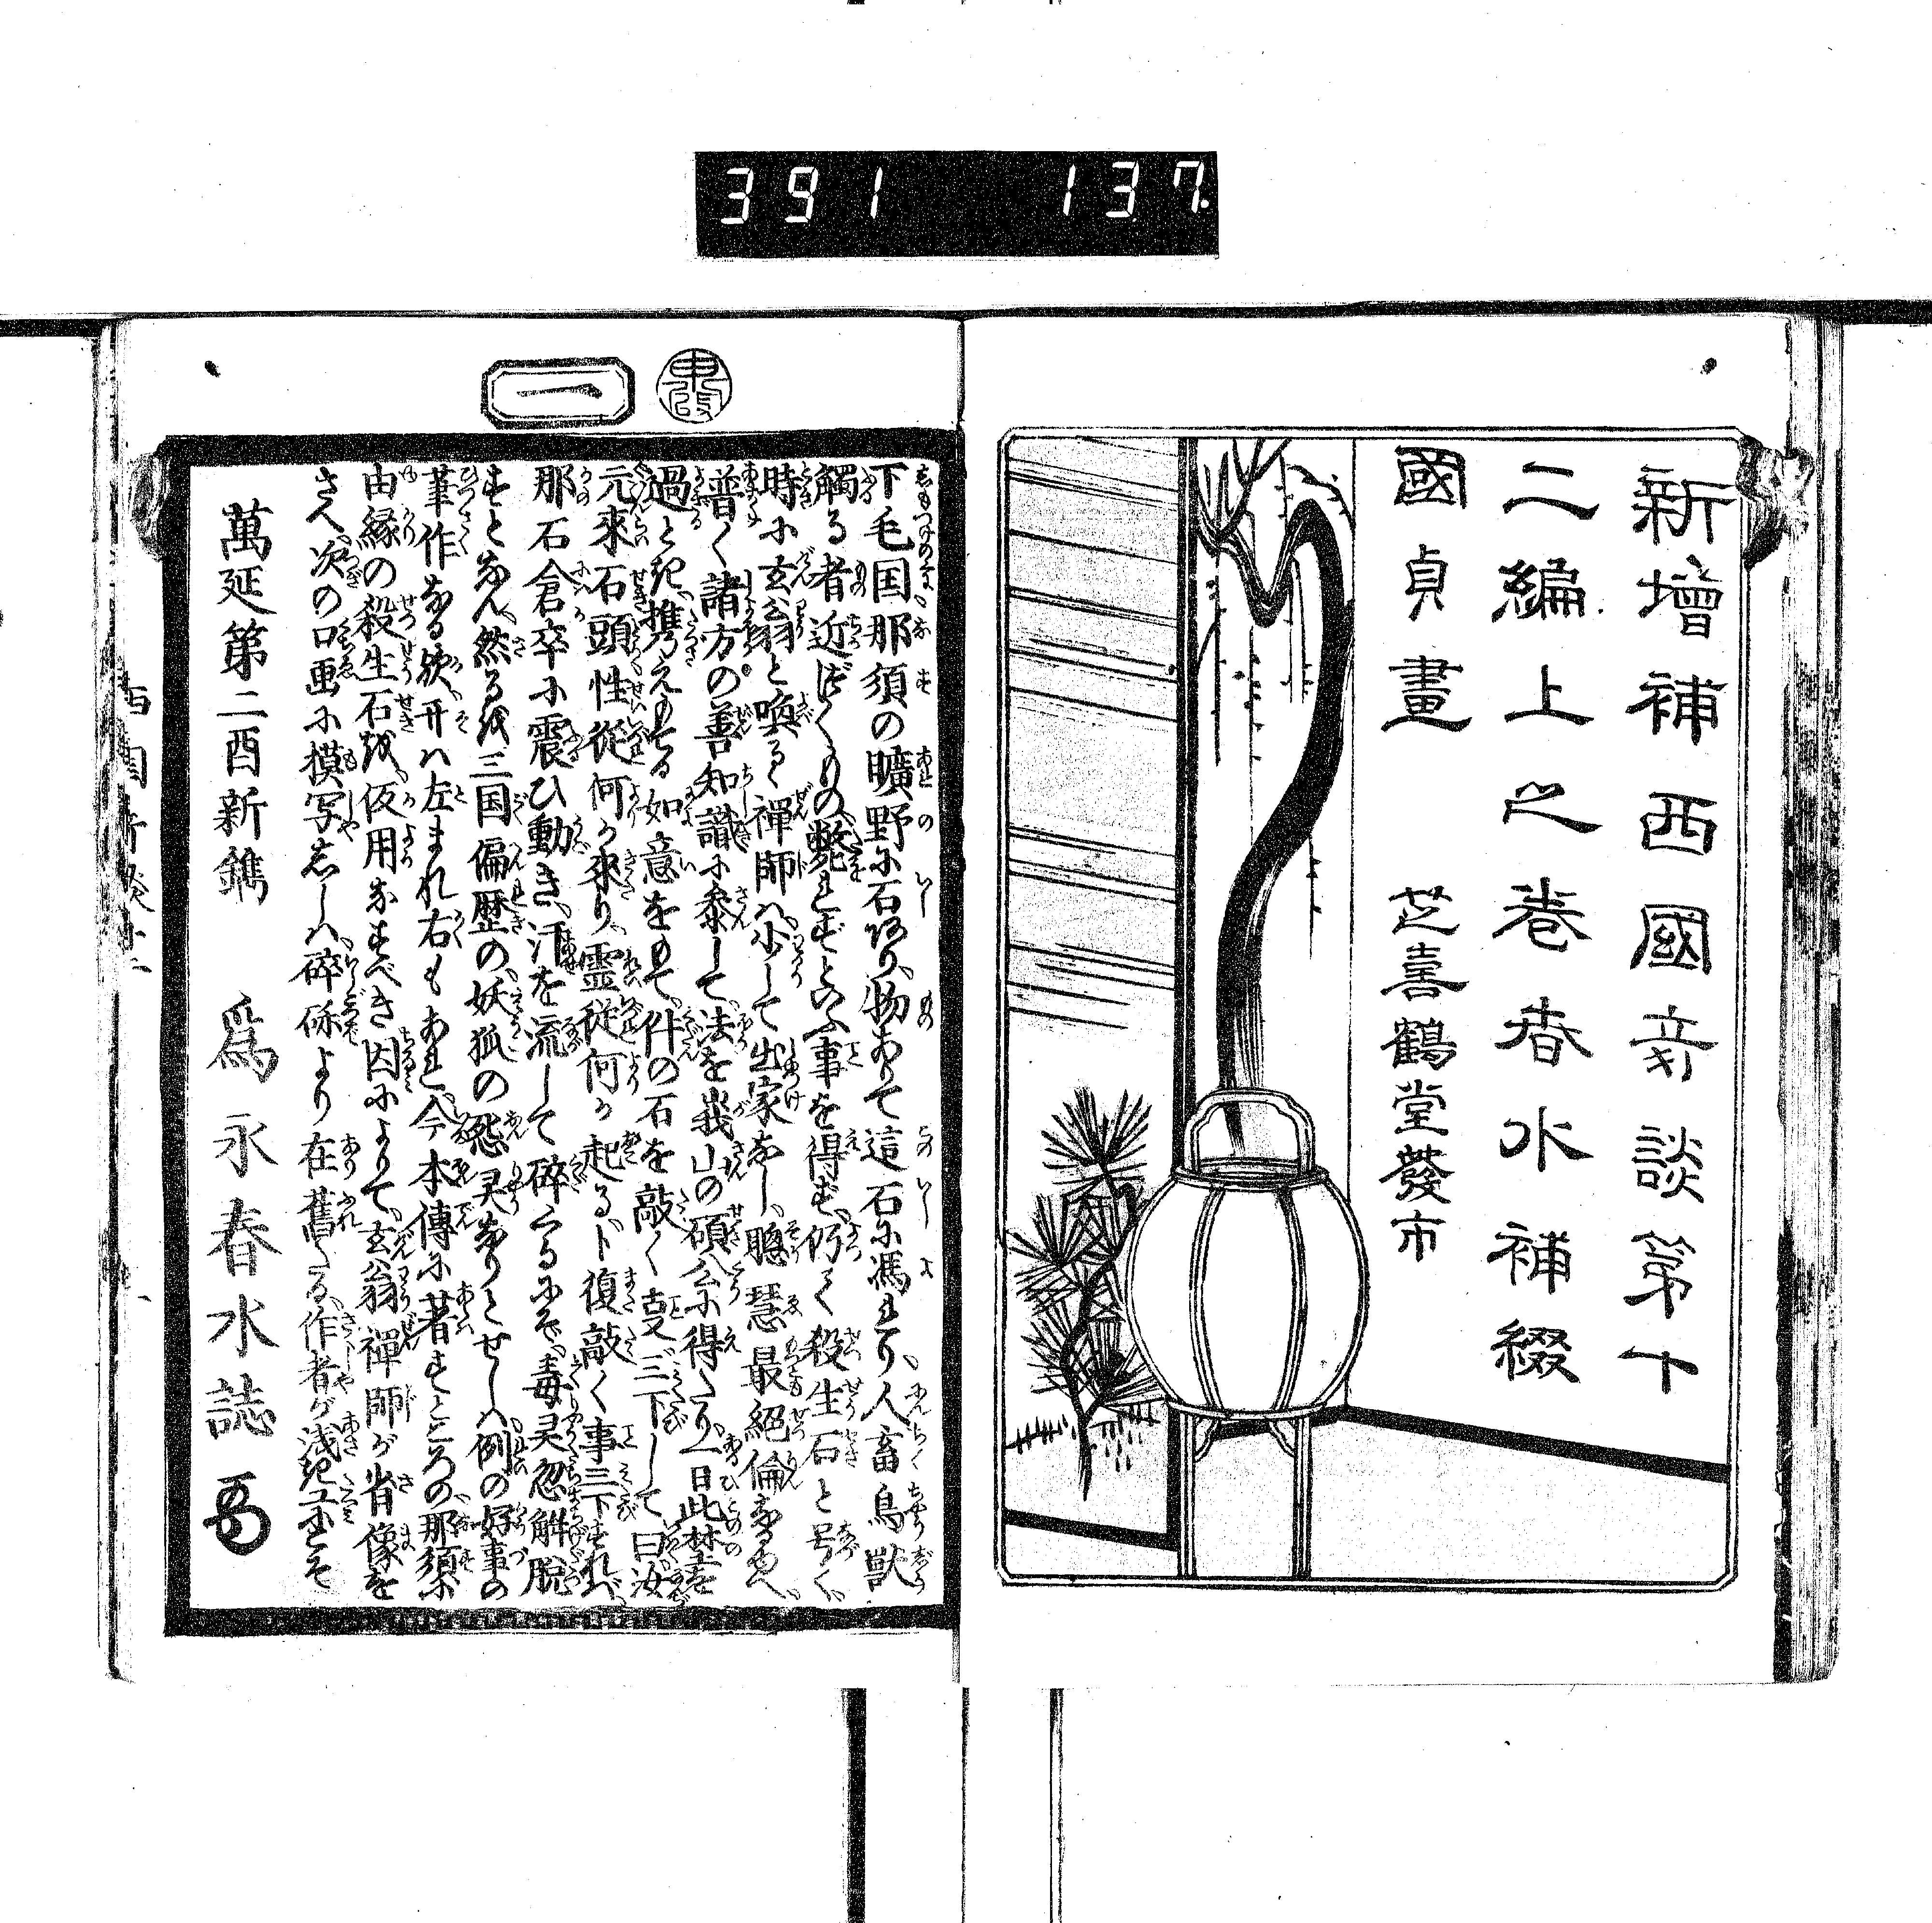 391 137.
新增補西國奇談第十
二編上之巻春水補綴
國貞畫 芝喜鶴堂發市
一
下毛国那須の曠野に石あり、物ありて這石に馮れり、人畜鳥獣
觸る者近づくもの斃れずといふ事を得ず、仍て殺生石と号く、
時に玄翁と喚るゝ禅師ハ、少して出家なし、聰慧最絶倫なるゆへ、
普く諸方の善知識に參して、法を峩山の碩公に得たり、一日此禁を
過とき、携えもてる如意をもて、件の石を敲く支三下して曰汝
元來石頭性從何か來り、霊從何か起る、ト復敲く事三下すれバ、
那石倉卒に震ひ動き、汗を流して碎けるにぞ、毒灵忽解脱
すとなん、然るを三国偏歴の、妖狐の怨灵なりとせしハ、例の好事の
筆作なる欤、开ハ左まれ右もあれ、今本傳に著すところの那須に
由縁の殺生石を、仮用なすべき因によりて、玄翁禅師が肖像を
さへ、次の口画に摸写しハ、碎砾より在舊たる、作者が浅き工にこそ
萬延第二酉新鐫 爲永春水誌